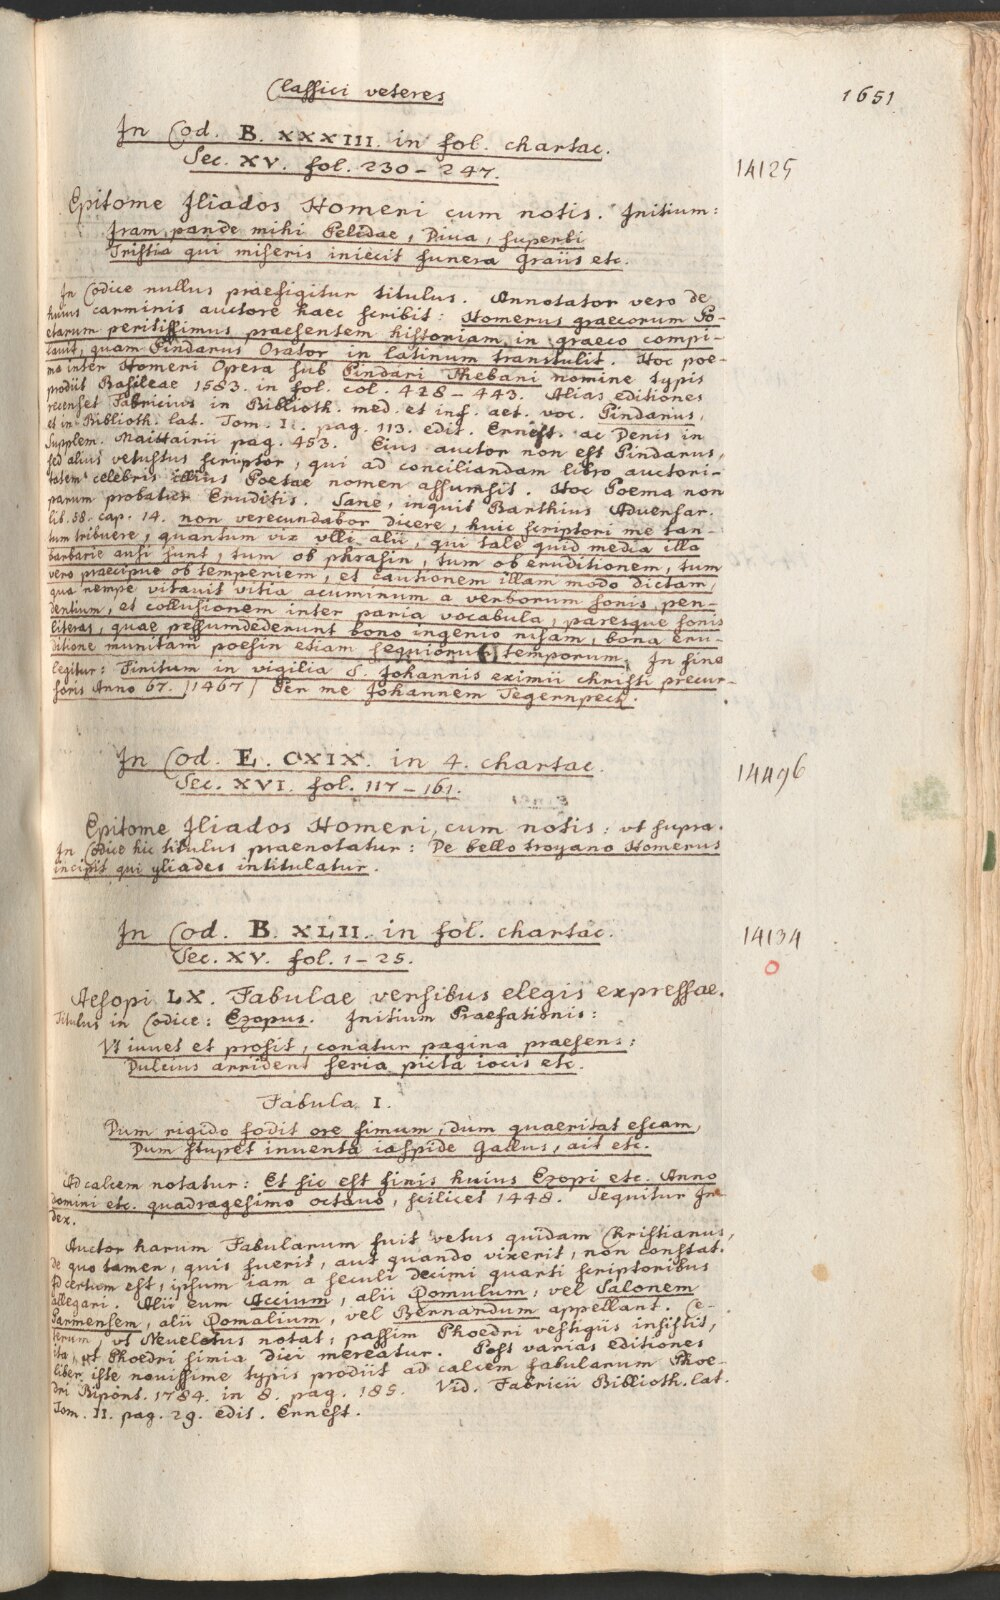 Classici veteres
1651
In Cod. B. XXXIII. in fol. chartac.
Sec. XV. fol. 230 - 247.
14125
Epitome Iliados Homeri cum notis. Initium:
Iram pande mihi Pelidae, Diua, superbi
Tristia qui miseris iniecit funera Graiis etc.
In Codice nullus praefigitur titulus. Annotator vero de
huius carminis auctore haec scribit: Homerus graecorum Po-
etarum peritissimus praesentem historiam in graeco compi-
lauit, quam Pindarus Orator in latinum transtulit. Hoc poe-
ma inter Homeri Opera sub Pindari Thebani nomine typis
prodiit Basileae 1583. in fol. col. 428 - 443. Alias editiones
recenset Fabricius in Biblioth. med. et inf. aet. voc. Pindarus,
et in Biblioth. lat. Tom. I. pag. 113. edit. Ernest. ac Denis in
Supplem. Maittairii pag. 453. Eius auctor non est Pindarus,
sed alius vetustus scriptor, qui ad conciliandam libro auctori-
tatem celebris illius Poetae nomen assumsit. Hoc Poema non
parum probatur Eruditis. Sane, inquit Barthius Aduersar.
lib. 58. cap. 14. non verecundabor dicere, huic scriptori me tan-
tum tribuere, quantum vix vlli alii, qui tale quid media illa
barbarie ausi sunt, tum ob phrasin, tum ob eruditionem, tum
vero praecipue ob temperiem, et cautionem illam modo dictam,
qua nempe vitauit vitia acuminum a verborum sonis pen-
dentium, et collusionem inter paria vocabula, paresque sonis
literas, quae pessumdederunt bono ingenio nisam, bona eru-
ditione munitam poesin etiam sequiorum temporum. In fine
legitur: Finitum in vigilia S. Johannis eximii christi precur-
soris Anno 67. [1467] Per me Johannem Tegernpeck.
In Cod. E. CXIX. in 4. chartac.
Sec. XVI. fol. 117 - 161.
14496
Epitome Iliados Homeri, cum notis: vt supra.
In Codice hic titulus praenotatur: De bello troyano Homerus
incipit qui yliades intitulatur.
In Cod. B. XLII. in fol. chartac.
Sec. XV. fol. 1 - 25.
14134
Aesopi LX. Fabulae versibus elegis expressae.
Titulus in Codice: Ezopus. Initium Praefationis:
Vt iuuet et prosit, conatur pagina praesens:
Dulcius arrident seria picta iocis etc.
Fabula I.
Dum rigido fodit ore fimum, dum quaeritat escam,
Dum stupet inuenta iaspide Gallus, ait etc.
Ad calcem notatur: Et sic est finis huius Ezopi etc. Anno
domini etc. quadragesimo octauo, scilicet 1448. Sequitur In-
dex.
Auctor harum Fabularum fuit vetus quidam Christianus,
de quo tamen, quis fuerit, aut quando vixerit, non constat.
Id certum est, ipsum iam a seculi decimi quarti scriptoribus
allegari. Alii eum Accium, alii Romulum, vel Salonem
Parmensem, alii Romalium, vel Bernardum appellant. Ce-
terum, vt Neueletus notat, passim Phoedri vestigiis insistit,
ita, vt Phoedri simia dici mereatur. Post varias editiones
liber iste nouissime typis prodiit ad calcem fabularum Phoe-
dri Bipont. 1784. in 8. pag. 185. Vid. Fabricii Biblioth. lat.
Tom. II. pag. 29. edit. Ernest.